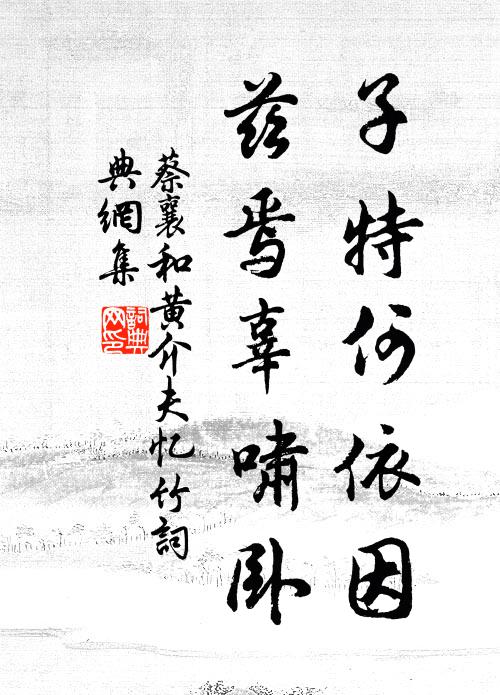 子特何依因
兹焉辜嘯卧
蔡襄和黄介夫忆竹詞
典網集
詞典
网印